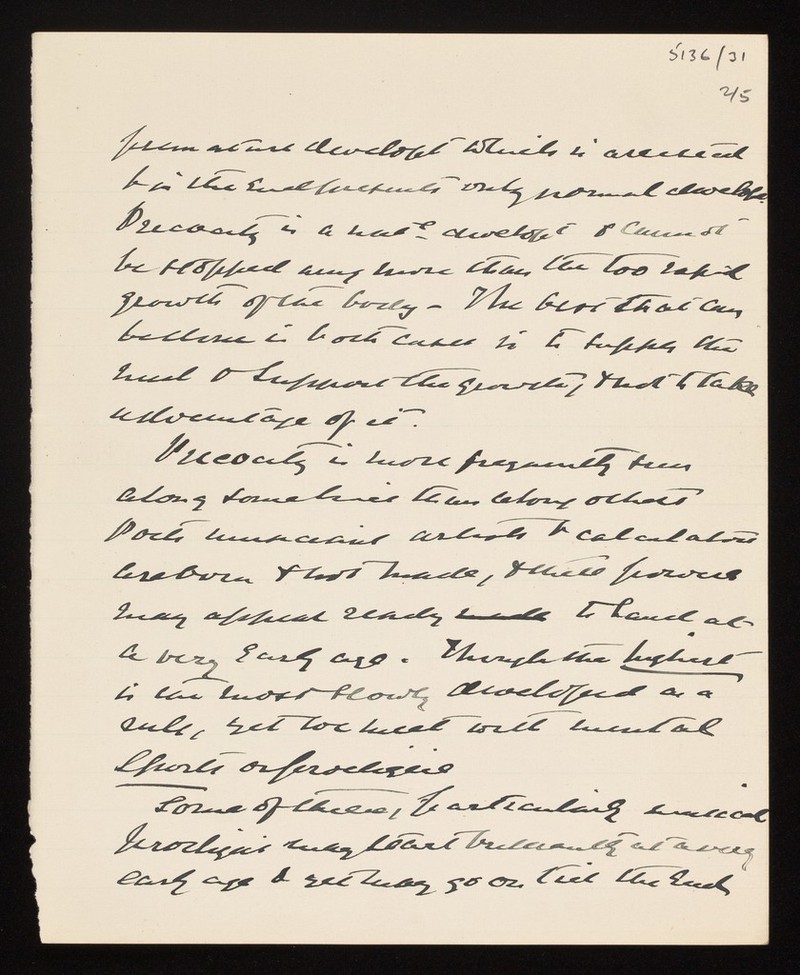 5136/31
2/5
premature developt which is arrested
& in the end presents only normal develop.
Precocity is a natl developt & cannot
be stopped any more than the too rapid
growth of the body - The best that can
be done in both cases is to supply the
need & support the growth, & not to take
advantage of it.
Precocity is more frequently seen
along some lines than along others
Poets musicians artists & calculators
are born & not made, & their powers
may appear ready made to hand at
a very early age. Though the highest
is the most slowly developed as a
rule, yet we meet with mental
Sports or prodigies
Some of these, particularly musical
prodigies may start brilliantly at a very
early age & yet may go on till the end